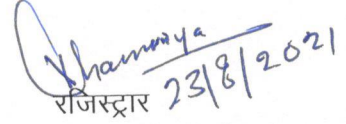 रजिस्ट्रार 23/8/2021